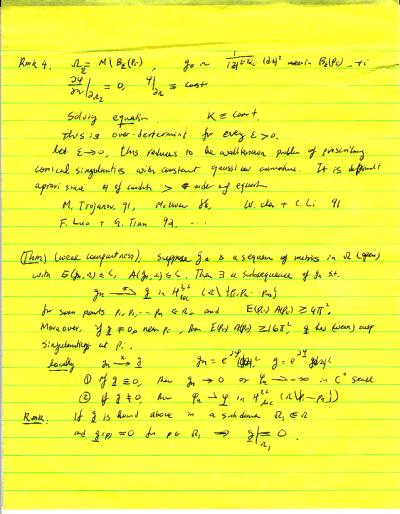 Rmk 4. Ω_ε = M \ B_ε(p_i), g_0 ~ 1/|z|^{2-2α_i} |dz|^2 near in B_ε(p_i)
∂φ/∂n|_{∂Ω_ε} = 0, φ|_{∂Ω_ε} ≡ const
Solving equation K ≡ const.
This is over-determined for every ε > 0.
Let ε→0, this reduces to the well known problem of prescribing
conical singularities with constant gaussian curvature. It is difficult
apriori since # of conditions > order of equation
M. Trojanov 91, McOwen 88, W. Chen + C. Li 91
F. Luo + G. Tian 92, ...
(Thm) (weak compactness). Suppose g_n is a sequence of metrics in Ω (open)
with E(g_n, Ω) ≤ C, A(g_n, Ω) ≤ C. Then ∃ a subsequence of g_n st.
g_n ⇀ g in H^{2,2}_{loc} (Ω \ {p_1, p_2 ... p_m})
for some points p_1, p_2, ... p_m ∈ Ω, and E(p_i) A(p_i) ≥ 4π^2.
Moreover, if g ≠ 0, near p_i, then E(p_i) A(p_i) ≥ 16π^2 g has (weak) cusp
singularities at p_i.
locally g_n ⇀ g g_n = e^{2φ_n}|dz|^2 g = e^{2φ}|dz|^2
① if g ≡ 0, then g_n → 0 or φ_n → -∞ in C^0 sense
② if g ≠ 0, then φ_n ⇀ φ in H^{2,2}_{loc} (Ω \ {p_1 ... p_m})
Rmk. If g is bound above in a subdomain Ω_1 ⊂ Ω
and g(p) = 0 for p ∈ Ω_1 ⟹ g|_{Ω_1} ≡ 0.